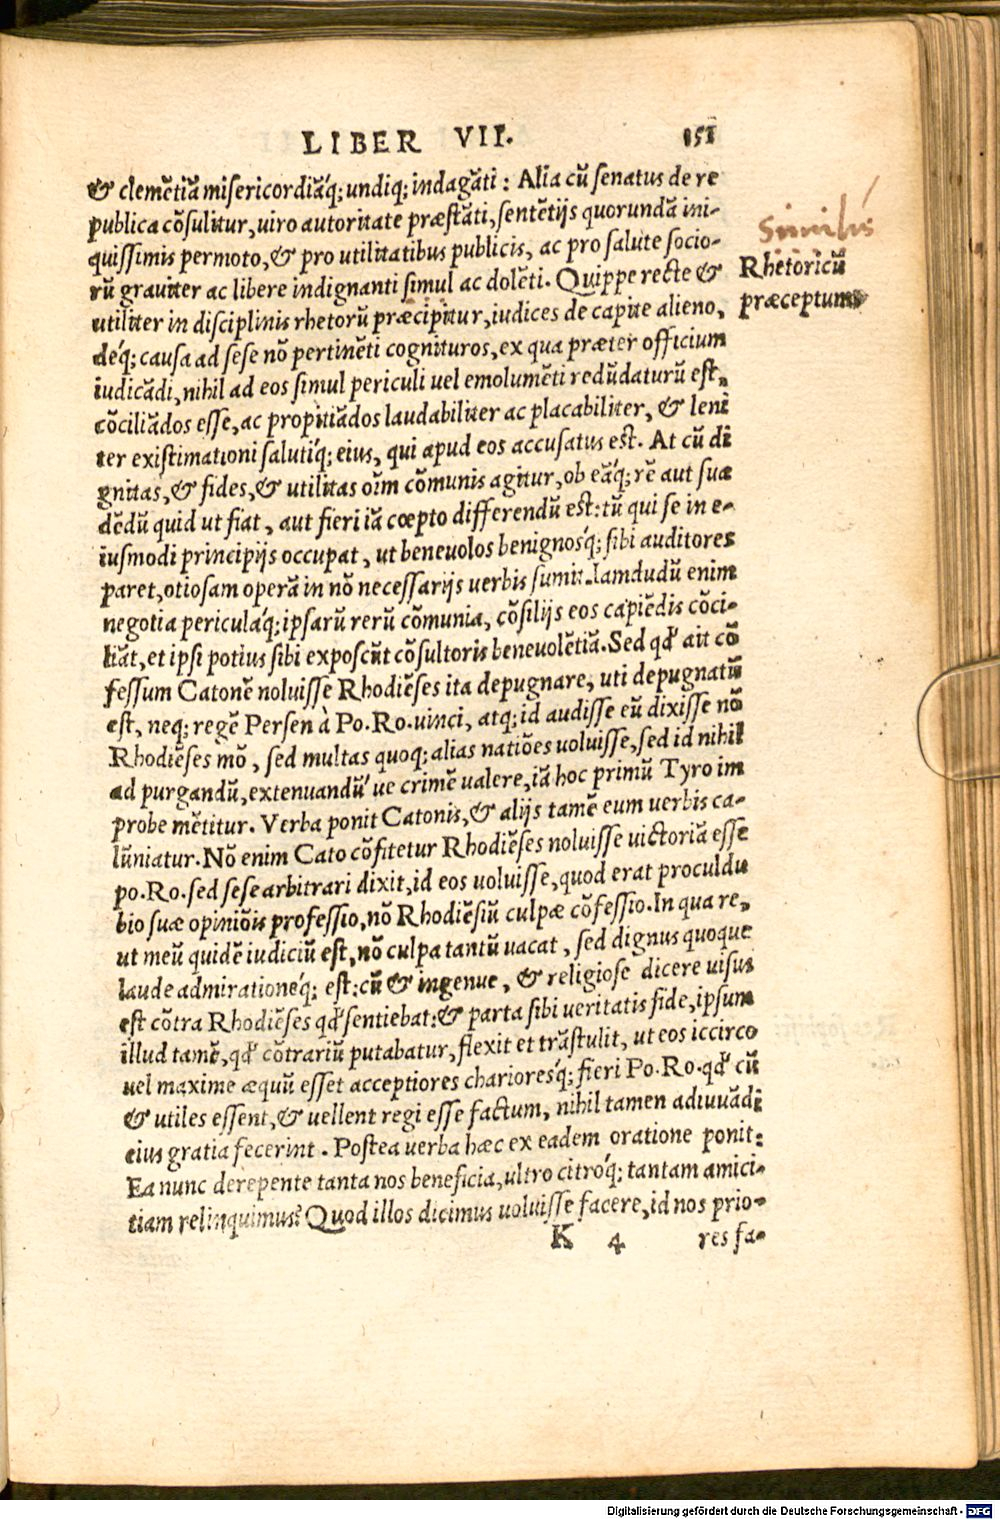 LIBER VII. 151
& clemẽtiã misericordiãq́; undiq; indagãti : Alia cũ senatus de re
publica cõsulitur, uiro autoritate præstãti, sentẽtijs quorundã ini-
quissimis permoto, & pro utilitatibus publicis, ac pro salute socio-
rũ grauiter ac libere indignanti simul ac dolẽti. Quippe recte &
utiliter in disciplinis rhetorũ præcipitur, iudices de capite alieno,
déq́; causa ad sese nõ pertinẽti cognituros, ex qua præter officium
iudicãdi, nihil ad eos simul periculi uel emolumẽti redũdaturũ est,
cõciliãdos esse, ac propitiãdos laudabiliter ac placabiliter, & leni
ter existimationi salutíq́; eius, qui apud eos accusatus est. At cũ di
gnitas, & fides, & utilitas oĩm cõmunis agitur, ob eãq́; rẽ aut sua
dẽdũ quid ut fiat, aut fieri iã cœpto differendũ est: tũ qui se in e-
iusmodi principijs occupat, ut beneuolos benignosq́; sibi auditores
paret, otiosam operã in nõ necessarijs uerbis sumit. Iamdudũ enim
negotia periculáq́; ipsarũ rerũ cõmunia, cõsilijs eos capiẽdis cõci-
liãt, et ipsi potius sibi exposcũt cõsultoris beneuolẽtiã. Sed qđ ait cõ
fessum Catonẽ noluisse Rhodiẽses ita depugnare, uti depugnatũ
est, neq; regẽ Persen à Po. Ro. uinci, atq; id audisse eũ dixisse nõ
Rhodiẽses mõ, sed multas quoq; alias natiões uoluisse, sed id nihil
ad purgandũ, extenuandṹ ue crimẽ ualere, iã hoc primũ Tyro im
probe mẽtitur. Verba ponit Catonis, & alijs tamẽ eum uerbis ca-
lũniatur. Nõ enim Cato cõfitetur Rhodiẽses noluisse uictoriã esse
po. Ro. sed sese arbitrari dixit, id eos uoluisse, quod erat proculdu
bio suæ opiniõis professio, nõ Rhodiẽsiũ culpæ cõfessio. In qua re,
ut meũ quidẽ iudiciũ est, nõ culpa tantũ uacat, sed dignus quoque
laude admirationéq́; est: cũ & ingenue, & religiose dicere uisus
est cõtra Rhodiẽses qđ sentiebat: & parta sibi ueritatis fide, ipsum
illud tamẽ, qđ cõtrariũ putabatur, flexit et trãstulit, ut eos iccirco
uel maxime æquũ esset acceptiores charioresq́; fieri Po. Ro. qđ cũ
& utiles essent, & uellent regi esse factum, nihil tamen adiuuãdi
eius gratia fecerint. Postea uerba hæc ex eadem oratione ponit:
Ea nunc derepente tanta nos beneficia, ultro citróq́; tantam amici-
tiam relinquimus? Quod illos dicimus uoluisse facere, id nos prio-
K 4 res fa-
Rhetoricũ
præceptum
Digitalisierung gefördert durch die Deutsche Forschungsgemeinschaft - DFG